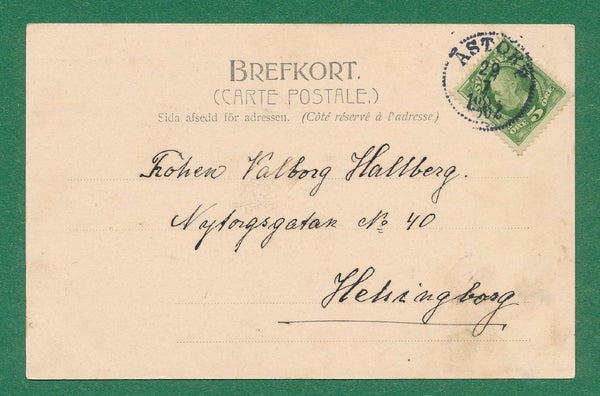 BREFKORT.
(CARTE POSTALE.)
Sida afsedd för adressen. (Côté réservé à l'adresse.)
Fröken Valborg Hallberg.
Nytorgsgatan No 40
Helsingborg
ÅSTORP
29
1
5